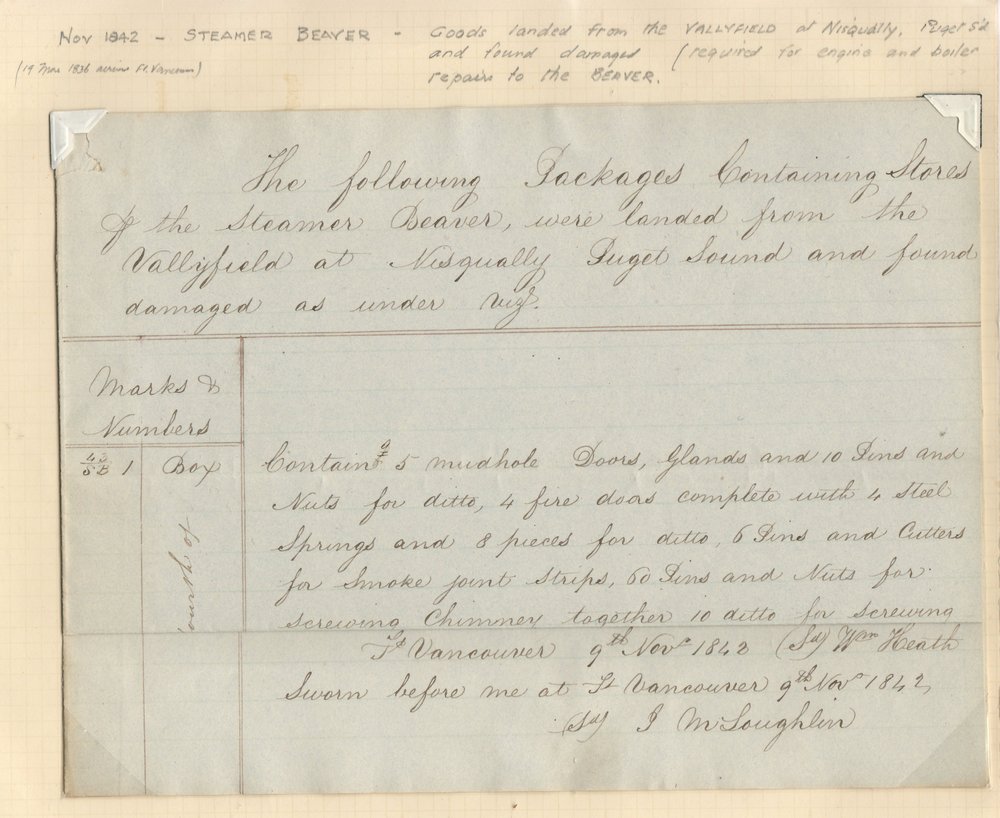 Nov 1842 - STEAMER BEAVER - Goods landed from the VALLYFIELD at Nisqually, Puget S'd
and found damaged (required for engine and boiler
(19 Mar 1836 arrives Ft. Vancouver)
repairs to the BEAVER.
The following Packages Containing Stores
of the Steamer Beaver, were landed from the
Vallyfield at Nisqually Puget Sound and found
damaged as under viz.
Marks &
Numbers
1 Box Contain.g 5 mudhole Doors, Glands and 10 Pins and
Nuts for ditto, 4 fire doors complete with 4 Steel
Springs and 8 pieces for ditto, 6 Pins and Cutters
for Smoke joint Strips, 60 Pins and Nuts for
screwing Chimney together 10 ditto for screwing
Ft Vancouver 9th Novr 1842 (Sd) Wm Heath
Sworn before me at Ft Vancouver 9th Novr 1842,
(Sd) J McLoughlin